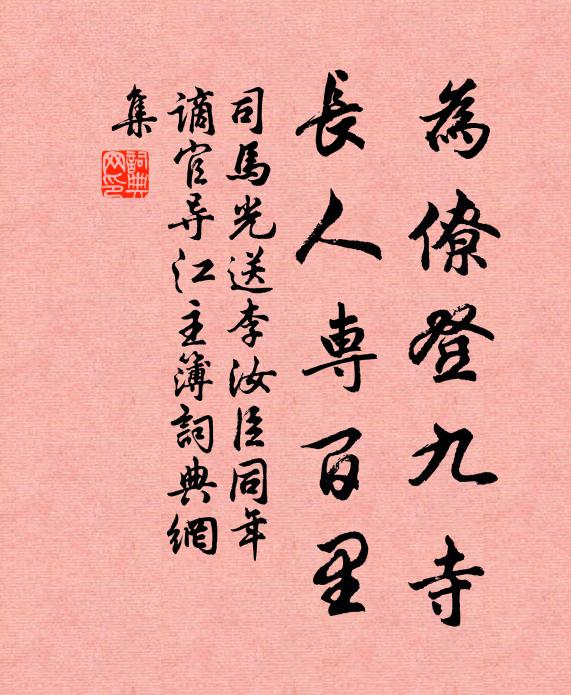 為僚登九寺
長人専百里
司馬光送李汝臣同年
谪官导江主簿詞典網
集
詞典
网印